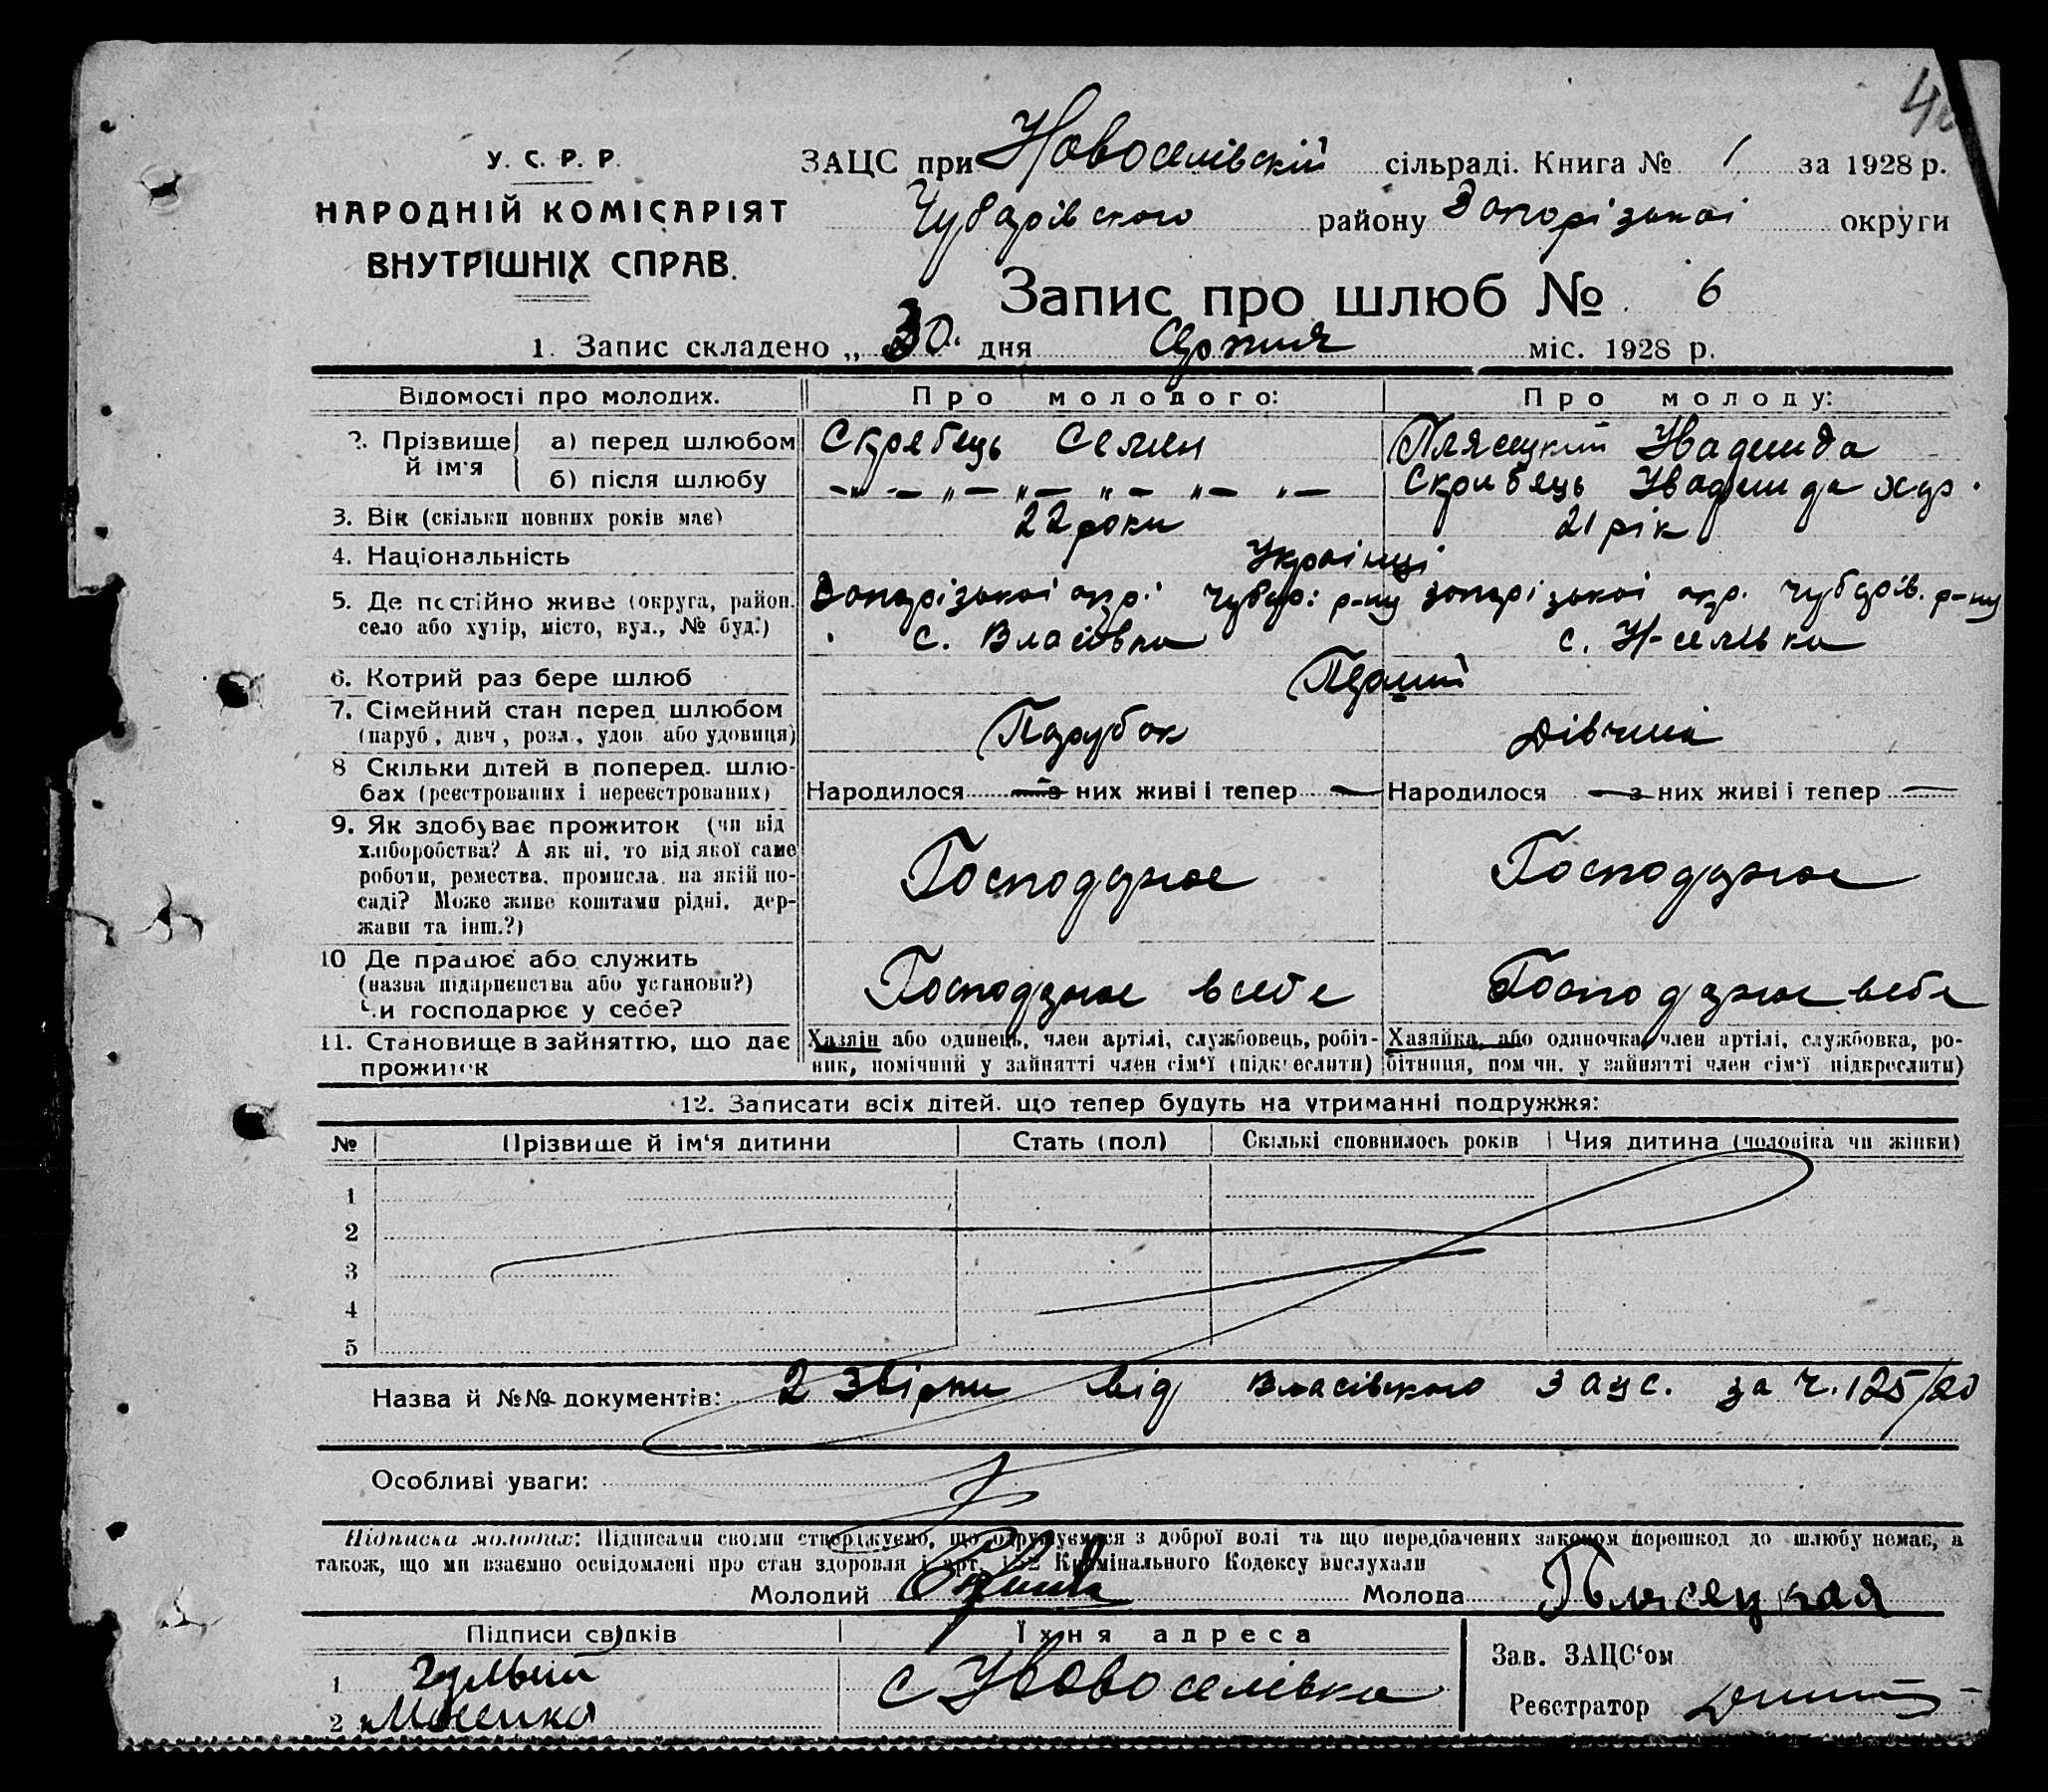 У. С. Р. Р.
НАРОДНІЙ КОМІСАРІЯТ
ВНУТРІШНІХ СПРАВ.
ЗАЦС при Новоселівській сільраді. Книга № 1 за 1928 р.
Чубарівского району Запорізькоі округи
Запис про шлюб № 6
1. Запис складено „ 30. дня Серпня міс. 1928 р.
Відомості про молодих. Про молодого: Про молоду:
2. Прізвище й ім'я
а) перед шлюбом Скребець Семен Плясецкий Надежда
б) після шлюбу —„—„—„—„—„—„— Скрибець Надежда
3. Вік (скільки повних років має) 22 роки 21 рік
4. Національність Украінці
5. Де постійно живе (округа, район. Запорізькоі окр. Чубар: р-ну запорізькоі окр. Чубарів. р-ну
село або хутір, місто, вул., № буд.) с. Власівка с. Н-селівка
6. Котрий раз бере шлюб Перший
7. Сімейний стан перед шлюбом
(паруб, дівч, розл., удов або удовиця) Парубок Дівчина
8 Скільки дітей в поперед. шлю-
бах (реєстрованих і нереєстрованих) Народилося — з них живі і тепер — Народилося — з них живі і тепер —
9. Як здобуває прожиток (чи від
хліборобства? А як ні, то від якої саме
роботи, ремества, промисла, на якій по- Господарює Господарює
саді? Може живе коштами рідні, дер-
жави та інш.?)
10 Де працює або служить
(назва підприєнства або установи?) Господарює в себе Господарює в себе
Чи господарює у себе?
11. Становище в зайняттю, що дає Хазяін або одинець, член артілі, службовець, робіт- Хазяйка або одиночка, член артілі, службовка, ро-
прожиток ник, помічний у зайнятті член сім'ї (підкреслити) бітниця, пом чн. у зайнятті член сім'ї підкреслити)
12. Записати всіх дітей. що тепер будуть на утриманні подружжя:
№ Прізвише й ім'я дитини Стать (пол) Скількі сповнилось років Чия дитина (чоловіка чи жінки)
1
2
3
4
5
Назва й №№ документів: 2 Звірки від Власівского Зацс. за ч. 125/20
Особливі уваги:
Підписка молодих: Підписами своіми стверджуємо, що одружуємося з доброї волі та що передбачених законом перешкод до шлюбу немає, а
також, що ми взаємно освідомлені про стан здоровля і арт. 152 Кримінального Кодексу вислухали
Молодий Молода Плясецкая
Підписи свідків Їхня адреса
1
2 Мосенко
с Новоселівка
Зав. ЗАЦС'ом
Реєстратор